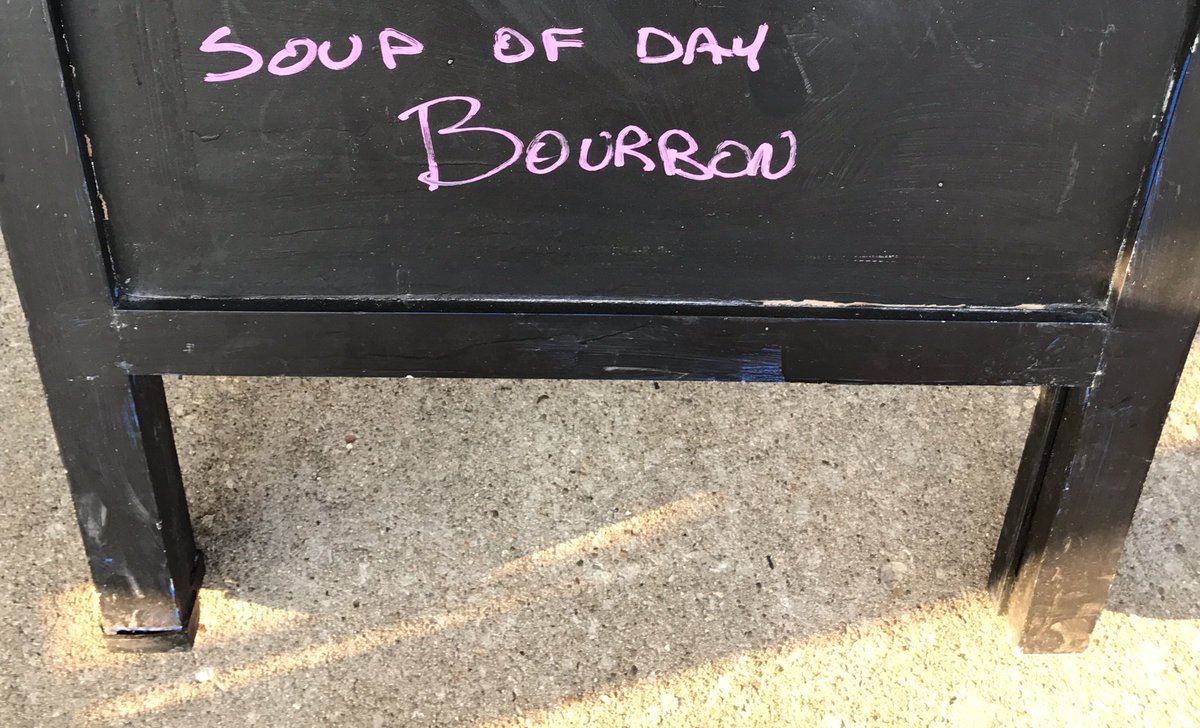 SOUP OF DAY
BOURBON